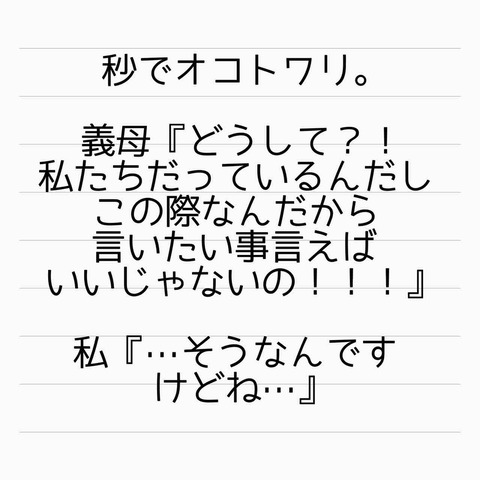 秒でオコトワリ。
義母『どうして？！
私たちだっているんだし
この際なんだから
言いたい事言えば
いいじゃないの！！！』
私『…そうなんです
けどね…』